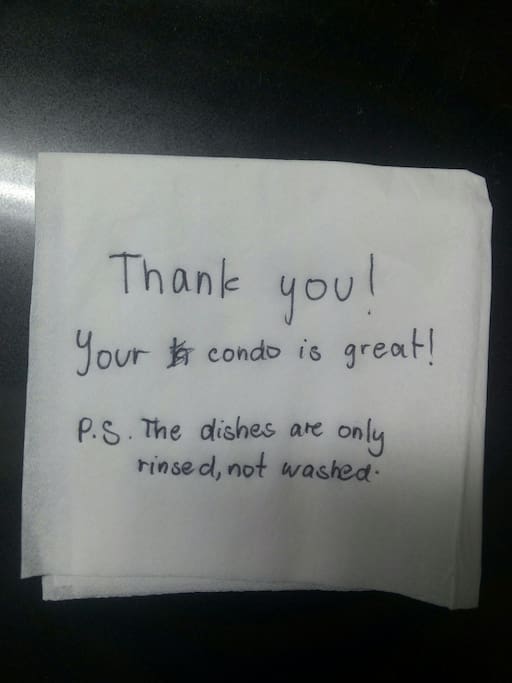 Thank you!
Your condo is great!
P.S. The dishes are only
rinsed, not washed.